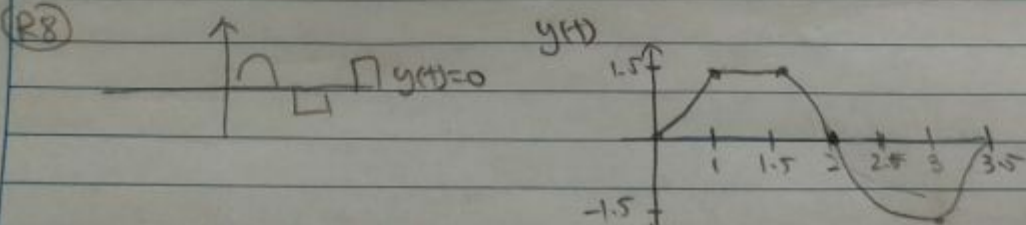 R8
y(t)=0
y(t)
1.5
1 1.5 2 2.5 3 3.5
-1.5